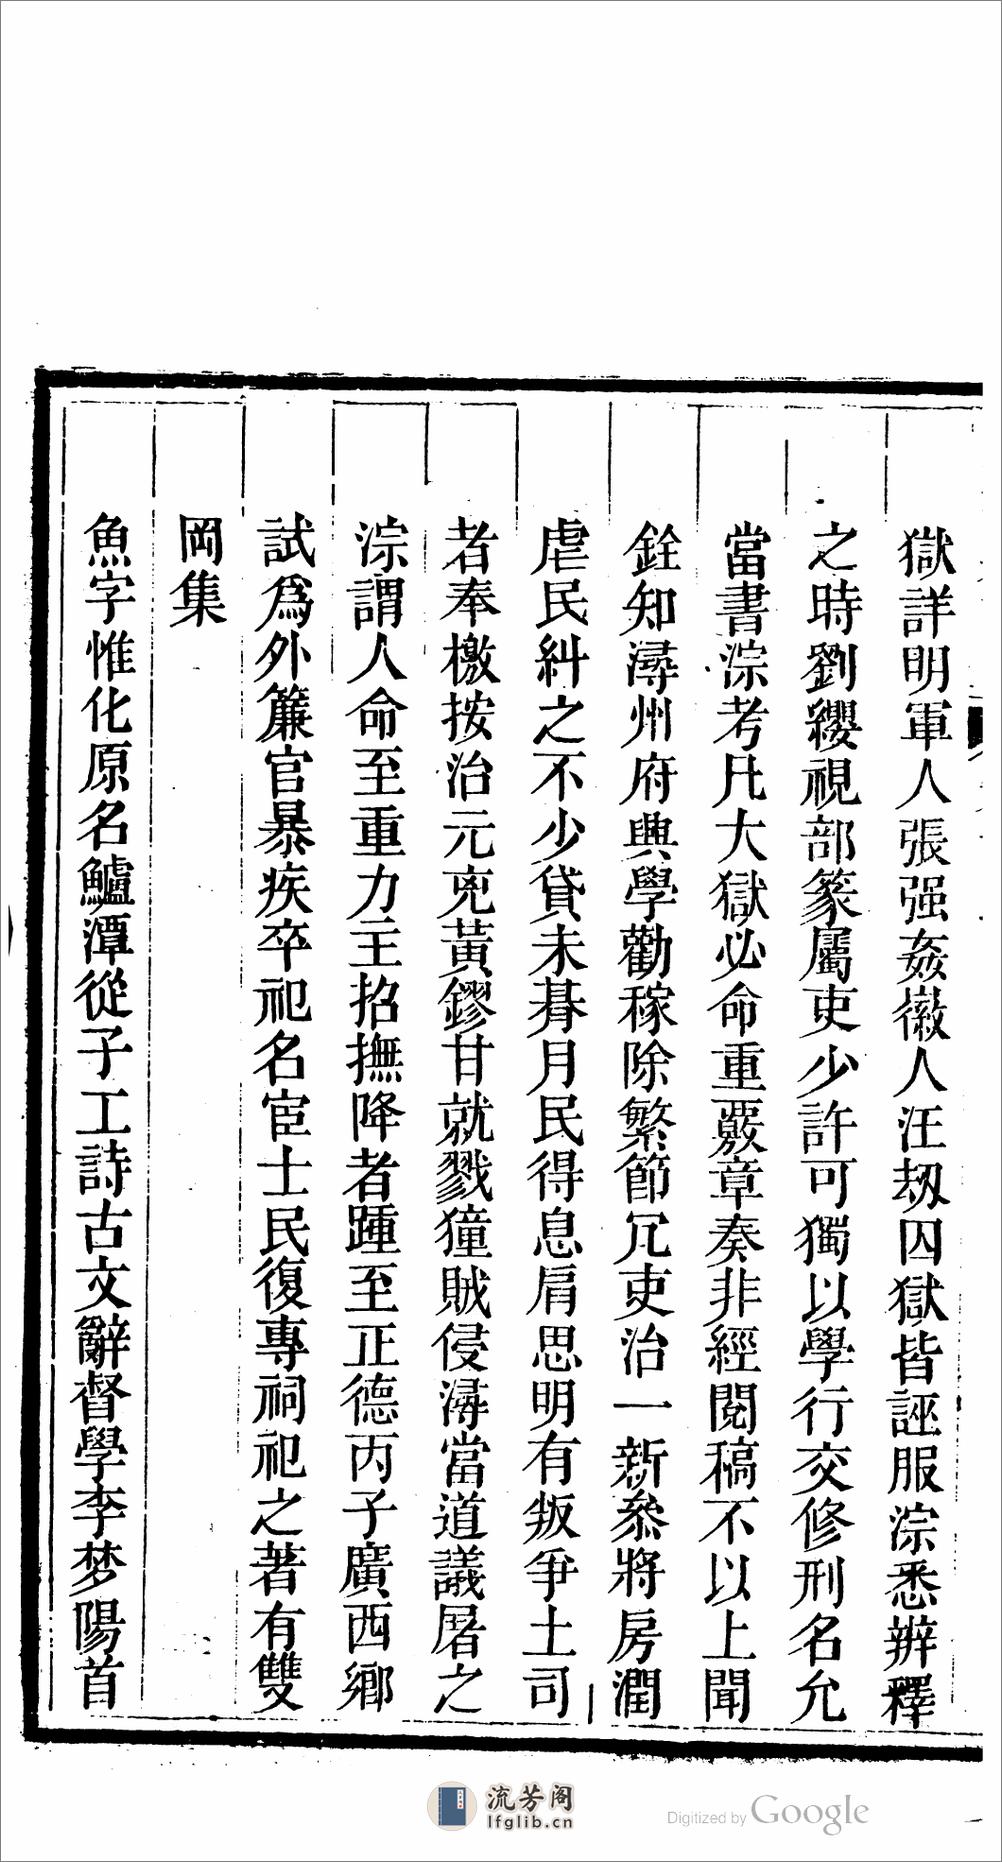 獄詳明軍人張强姦徽人汪刼囚獄皆誣服淙悉辨釋
之時劉纓視部篆屬吏少許可獨以學行交修刑名允
當書淙考凡大獄必命重覈章奏非經閱稿不以上聞
銓知潯州府興學勸稼除繁節冗吏治一新叅將房潤
虐民糾之不少貸未朞月民得息肩思明有叛爭土司
者奉檄按治元兇黃鏐甘就戮獞賊侵潯當道議屠之
淙謂人命至重力主招撫降者踵至正德丙子廣西鄉
試爲外簾官暴疾卒祀名宦士民復專祠祀之著有雙
岡集
魚字惟化原名鱸潭從子工詩古文辭督學李梦陽首
流芳阁
lfglib.cn
Digitized by Google